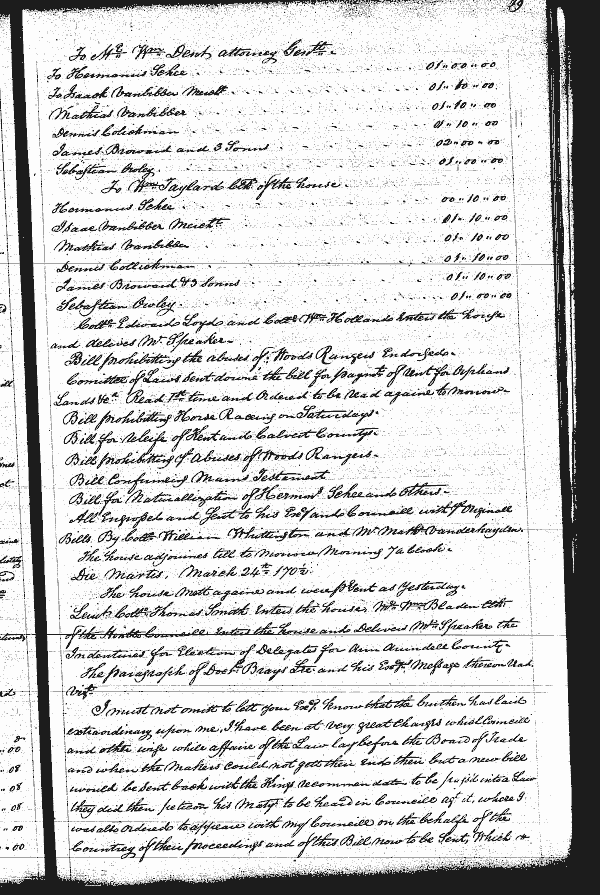 29
To Mr. Wm. Dent attorney Genll.
To Hermanus Schee 01" 00 " 00
To Isaack Vanbibber Meriott 01" 10 " 00
Mathias Vanbibber 01" 10 " 00
Dennis Colickman 01" 10 " 00
James Broward and 3 Sonns 02" 00 " 00
Sebastian Owley 01" 00 " 00
To Wm. Taylard Clk of the house
Hermanus Schee 00" 10 " 00
Isaac Vanbibber 01" 10 " 00
Mathias Vanbibber 01" 10 " 00
Dennis Collickman 01" 10 " 00
James Broward & 3 Sonns 01" 10 " 00
Sebastian Owley 01" 00 " 00
Collo. Edward Loyd and Collo. Wm. Holland Enters the house
and delivers Mr. Speaker
Bill prohibitting the abuses of Woods Rangers Endorsed.
Comittee of Laws Sent downe the bill for paymt. of rent for Orphans
Lands &ca. Read 1st. time and Ordered to be read againe to morrow
Bill prohibitting Horse Raceing on Saturdays.
Bill for releife of Kent and Calvert Countys.
Bill prohibitting ye. Abuses of Woods Rangers.
Bill Confirmeing Mams Testament
Bill for Naturallization of Hermns. Schee and others.
All Engrossed and Sent to his Excy. and Councill with ye. Originall
Bills. By Collo. William Whittington and Mr. Matth. Vanderhayden.
The house adjournes till to morrow Morning 7 a Clock.
Die Martis, March 24th. 170
The house mett againe and were p̱sent as Yesterday.
Leiut. Collo. Thomas Smith Enters the house, Mr. Wm. Bladen Clk
of the Honble Councill Enters the house and Delivers Mr. Speaker the
Indentures for Election of Delegates for Ann Arundell County.
The paragraph of Doctr. Brays Lre and his Excys. Message thereon read.
vizt.
I must not omitt to lett your Excy. know that the burthen has laid
extraordinary upon me, I have been at very great Charges whilst Councill
and other wise while affaire of the Law lay before the Board of Trade
and when the Makers could not gett their Ends then but a new bill
would be sent back with the Kings recommendatn. to be pass'd into a Law
they did then petition his Maty. to be heard in Councill agt. it, where I
was also ordered to appeare with my Councill on the behalfe of the
Countrey of their proceedings and of this Bill now to be Sent, Which